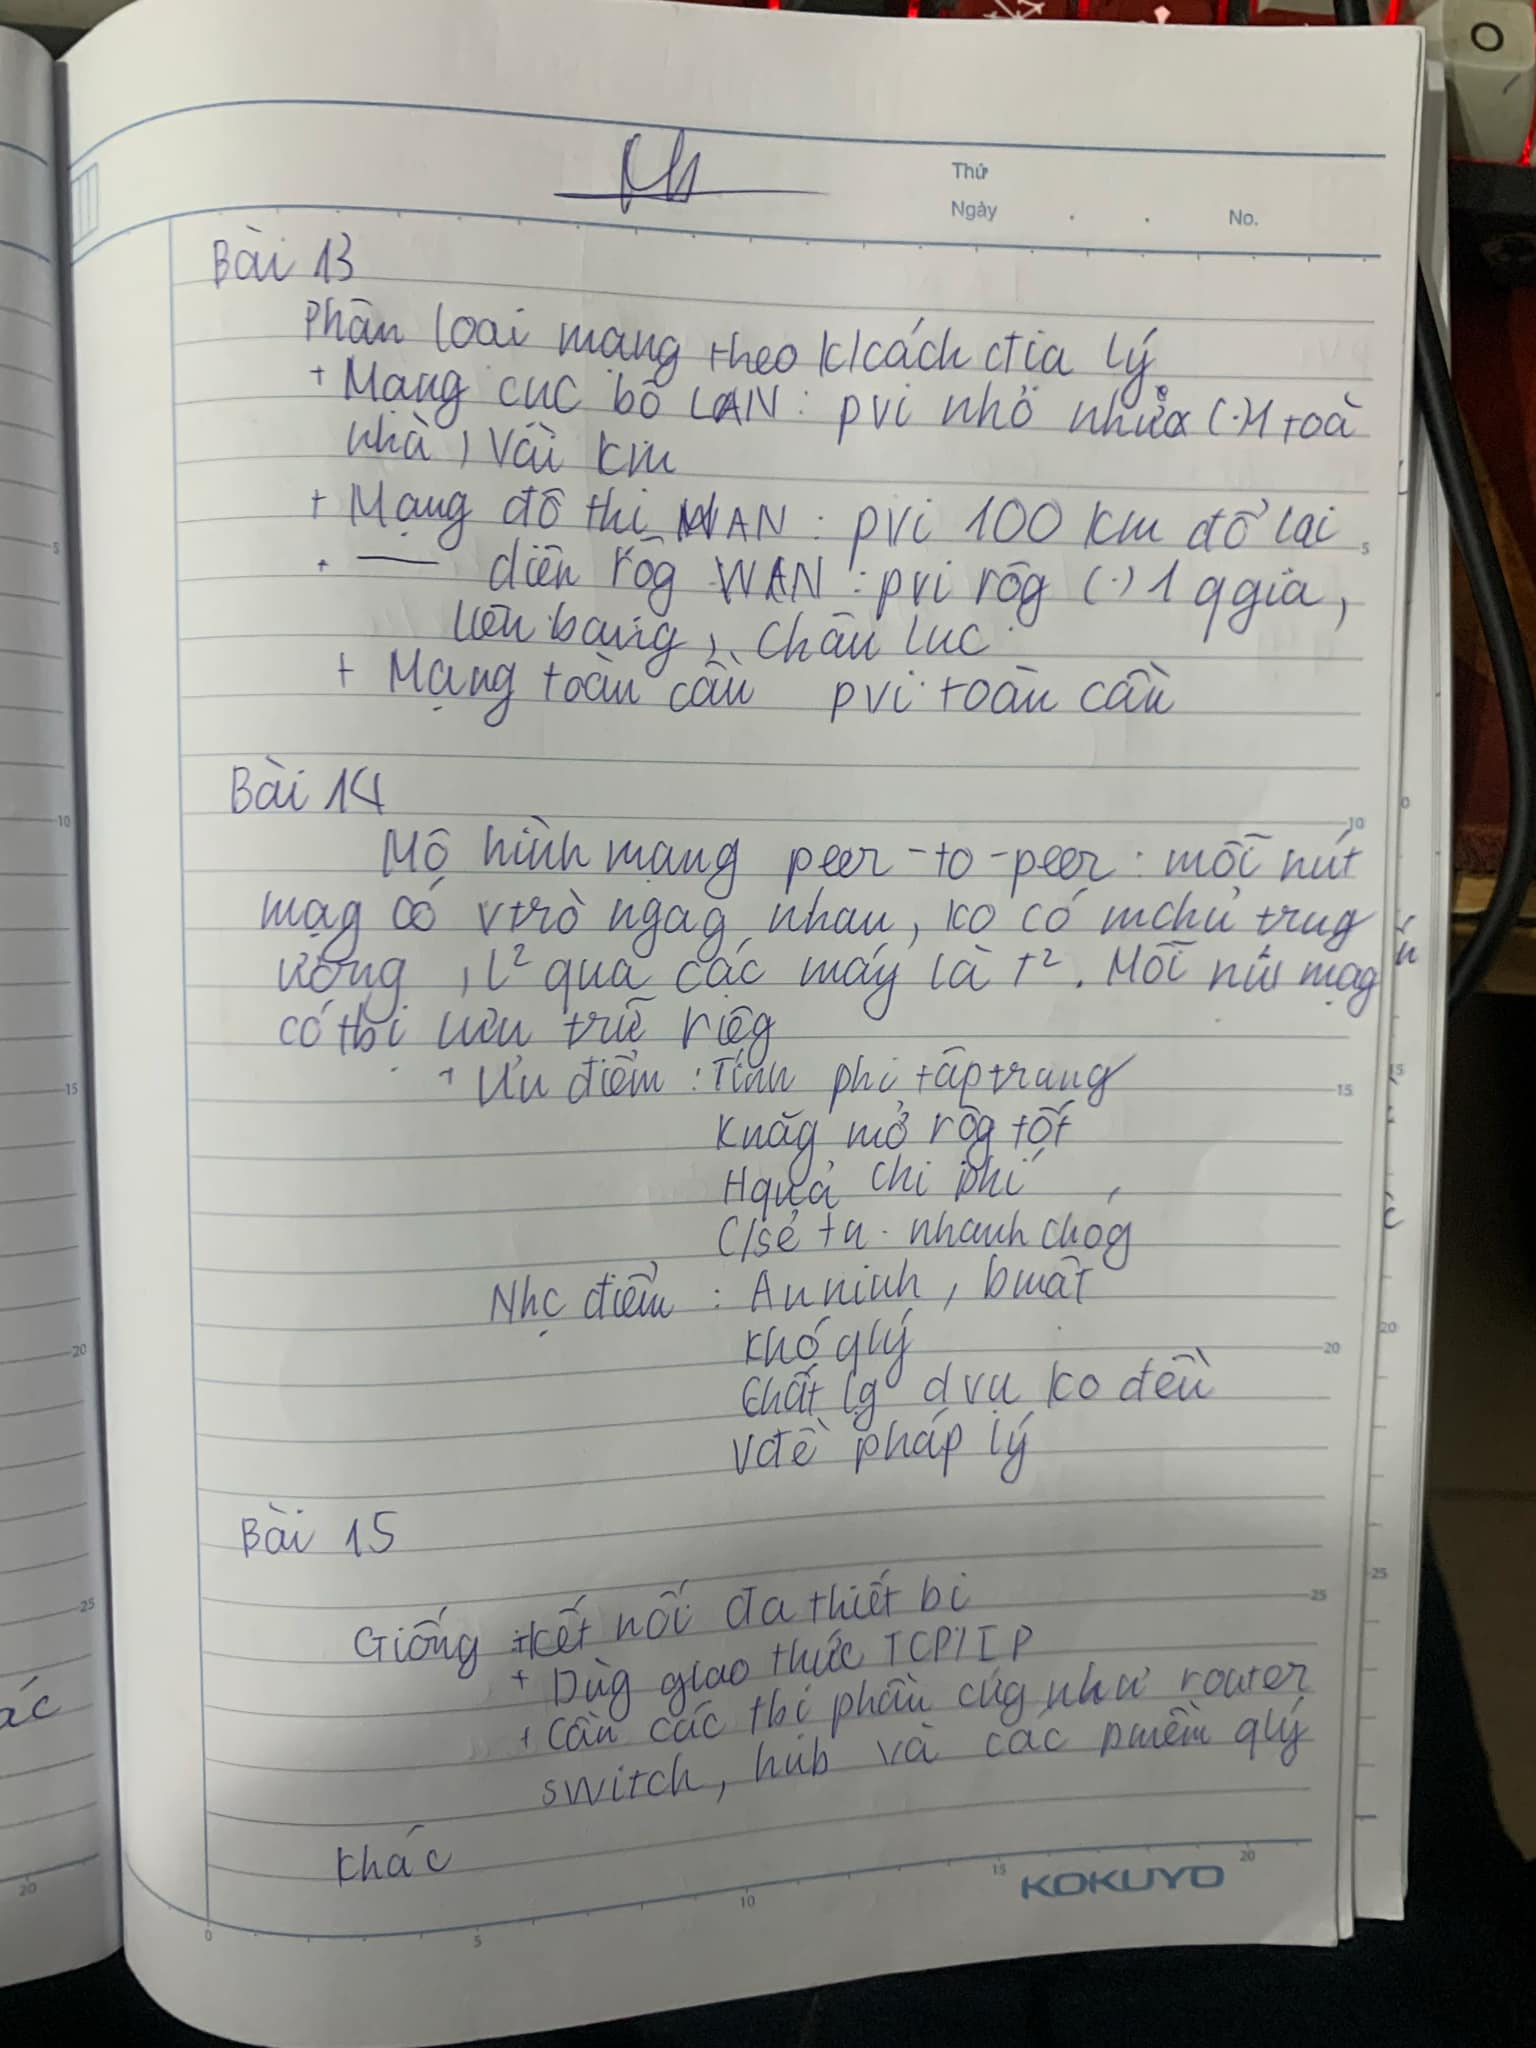 Thứ
Ngày . . No.
Bài 13
Phân loai mạng theo k/cách địa lý
+ Mạng cuc bô LAN : pvi nhỏ như (.) 1 toà
nhà, vài km
+ Mạng đô thi MAN : pvi 100 km đổ lại
+ — diên rôg WAN : pvi rôg (.) 1 qgia,
liên bang, châu luc
+ Mạng toàn cầu pvi toàn cầu
Bài 14
Mô hình mạng peer-to-peer : mỗi nút
mạg có vtrò ngag nhau, ko có mchủ trug
ương, l² qua các máy là t². Mỗi nút mạg
có tbi lưu trữ riêg
+ Ưu điểm : Tính phi tâp trung
Knăg mở rôg tốt
Hquả chi phí
C/sẻ tn. nhanh chóg
Nhc điểm : An ninh, bmât
khó qlý
Chất lg dvu ko đều
Vđề pháp lý
Bài 15
Giống : +kết nối đa thiết bi
+ Dùg giao thức TCP/IP
+ Cần các tbi phần cứg như router
switch, hub và các pmềm qlý
Khác
KOKUYO